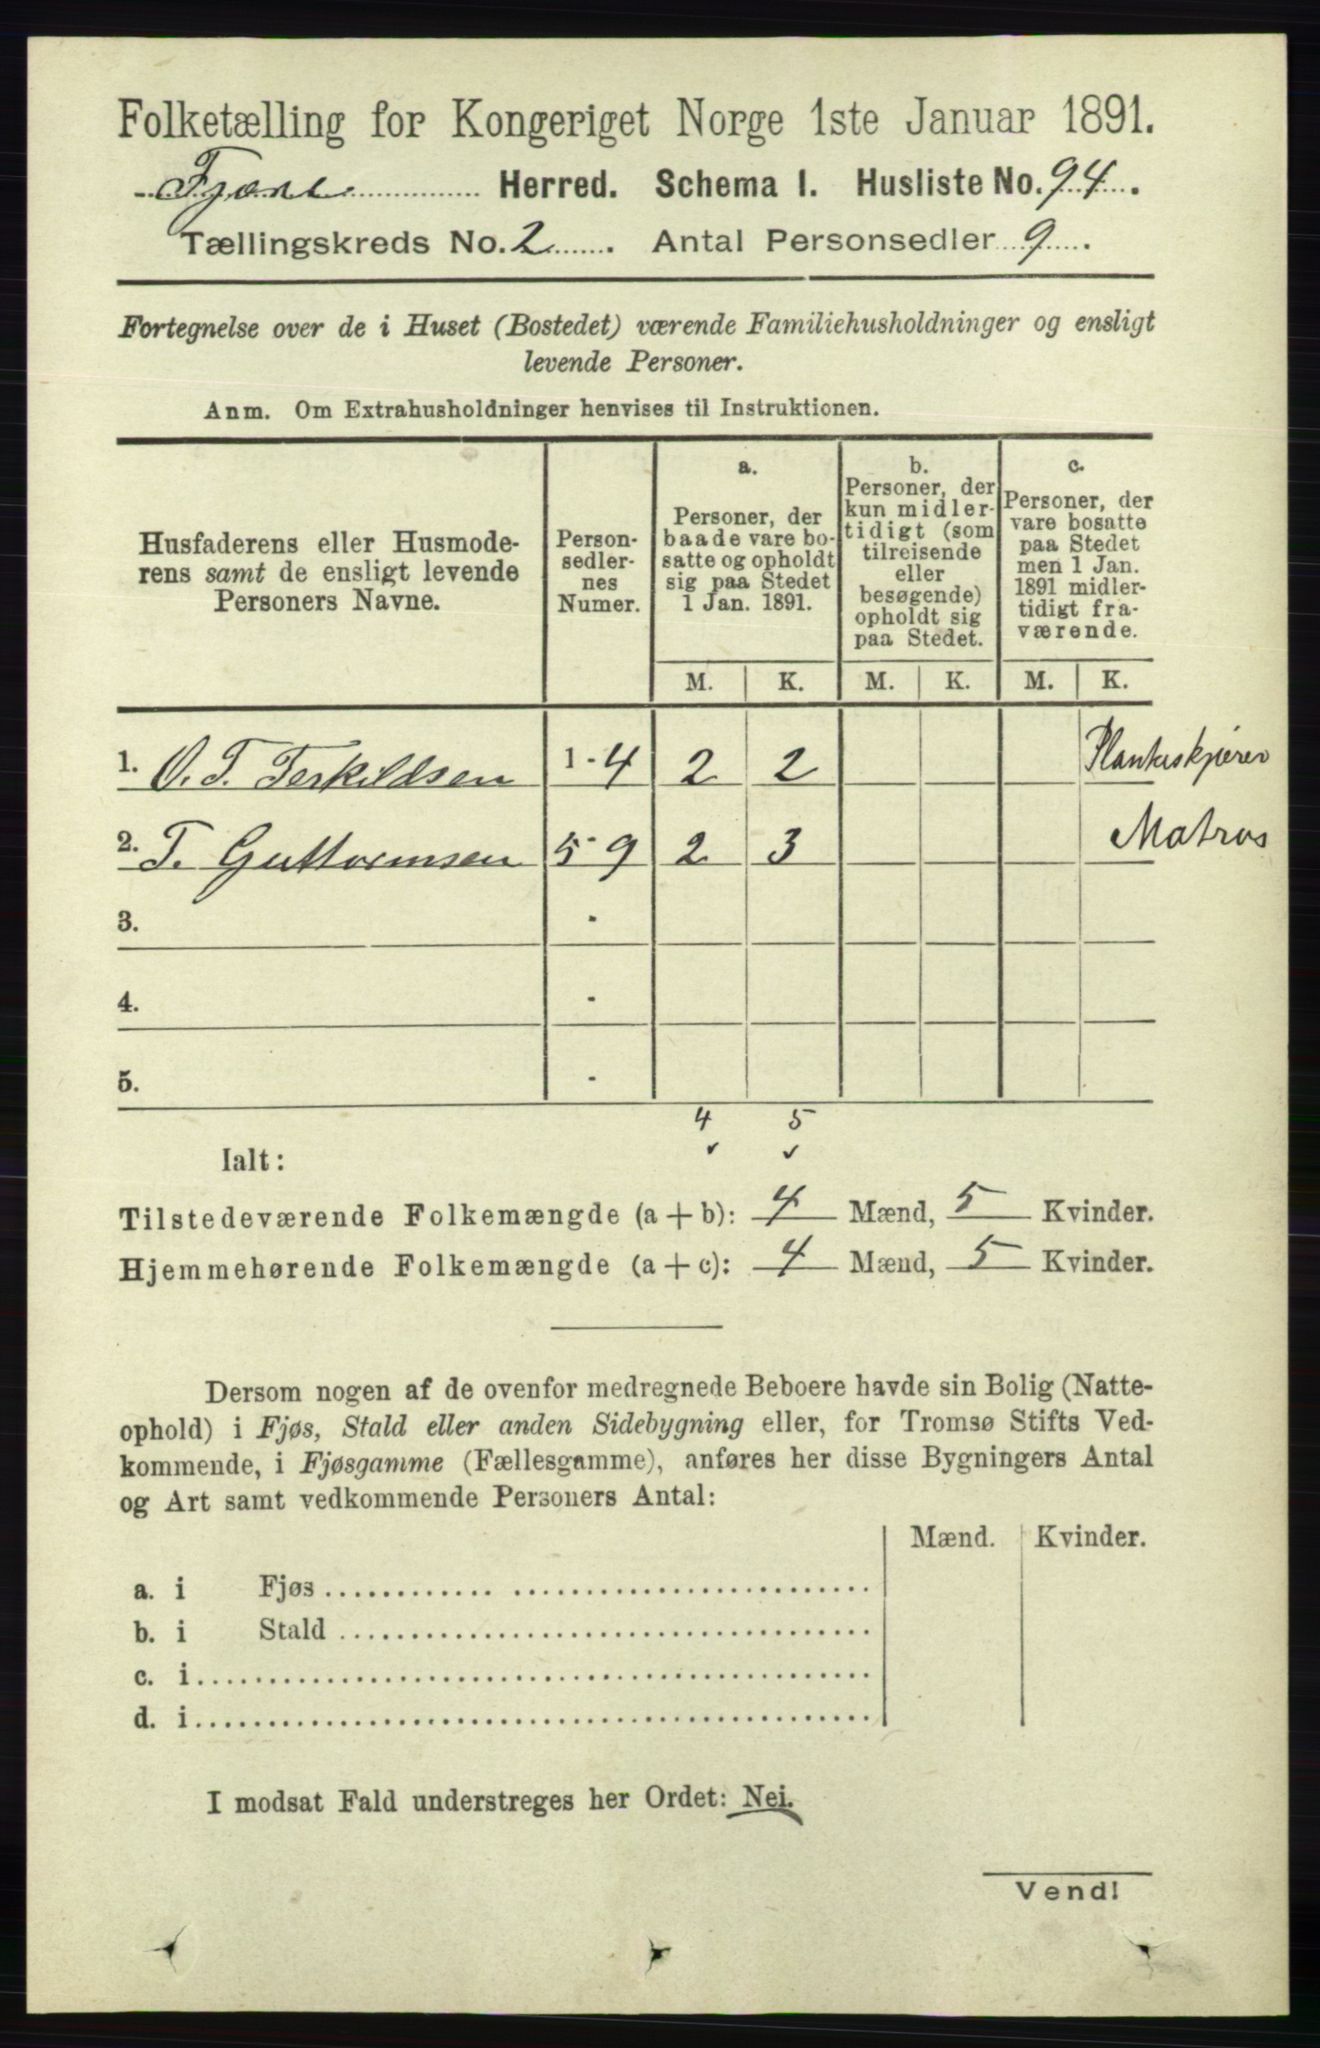 Folketælling for Kongeriget Norge 1ste Januar 1891.
Fjære Herred. Schema I. Husliste No. 94.
Tællingskreds No. 2. Antal Personsedler 9.
Fortegnelse over de i Huset (Bostedet) værende Familiehusholdninger og ensligt
levende Personer.
Anm. Om Extrahusholdninger henvises til Instruktionen.
Husfaderens eller Husmode-
rens samt de ensligt levende
Personers Navne.
Person-
sedler-
nes
Numer.
a.
Personer, der
baade vare bo-
satte og opholdt
sig paa Stedet
1 Jan. 1891.
b.
Personer, der
kun midler-
tidigt (som
tilreisende
eller
besøgende)
opholdt sig
paa Stedet.
c.
Personer, der
vare bosatte
paa Stedet
men 1 Jan.
1891 midler-
tidigt fra-
værende.
M. K. M. K. M. K.
1. O. T. Terkildsen 1-4 2 2 Plankeskjærer
2. T. Guttormsen 5-9 2 3 Matros
3. -
4. -
5. -
4 5
Ialt:
Tilstedeværende Folkemængde (a + b): 4 Mænd, 5 Kvinder.
Hjemmehørende Folkemængde (a + c): 4 Mænd, 5 Kvinder.
Dersom nogen af de ovenfor medregnede Beboere havde sin Bolig (Natte-
ophold) i Fjøs, Stald eller anden Sidebygning eller, for Tromsø Stifts Ved-
kommende, i Fjøsgamme (Fællesgamme), anføres her disse Bygningers Antal
og Art samt vedkommende Personers Antal:
Mænd. Kvinder.
a. i Fjøs
b. i Stald
c. i
d. i
I modsat Fald understreges her Ordet: Nei.
Vend!